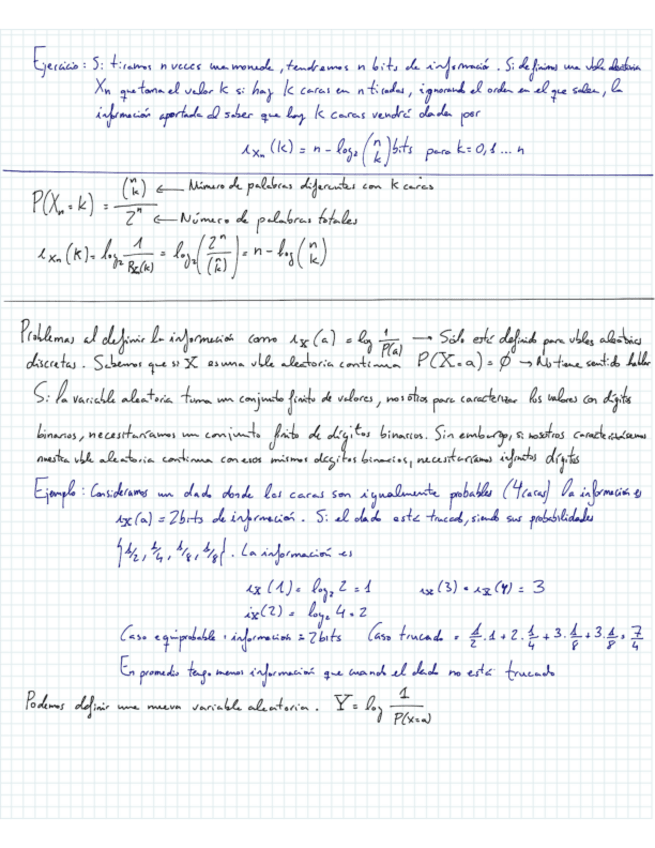 Ejercicio: Si tiramos n veces una moneda, tendremos n bits de información. Si definimos una vble aleatoria
Xn que toma el valor k si hay k caras en n tiradas, ignorando el orden en el que salen, la
información aportada al saber que hay k caras vendrá dada por
i_{Xn}(k) = n - log₂ (n k) bits para k=0,1 ... n
P(Xn = k) = (n k) / 2ⁿ ← Número de palabras diferentes con k caras
← Número de palabras totales
i_{Xn}(k) = log₂ 1/P_X(k) = log₂ (2ⁿ / (n k)) = n - log (n k)
Problemas al definir la información como i_X(a) = log 1/P(a) → Sólo está definido para vbles aleatorias
discretas. Sabemos que si X es una vble aleatoria continua P(X=a) = 0 → No tiene sentido hablar
Si la variable aleatoria toma un conjunto finito de valores, nosotros para caracterizar los valores con dígitos
binarios, necesitaríamos un conjunto finito de dígitos binarios. Sin embargo, si nosotros caracterizásemos
nuestra vble aleatoria continua con esos mismos dígitos binarios, necesitaríamos infinitos dígitos
Ejemplo: Consideramos un dado donde las caras son igualmente probables (4 caras) la información es
i_X(a) = 2 bits de información. Si el dado está trucado, siendo sus probabilidades
{1/2, 1/4, 1/8, 1/8}. La información es
i_X(1) = log₂ 2 = 1 i_X(3) = i_X(4) = 3
i_X(2) = log₂ 4 = 2
Caso equiprobable: información = 2 bits Caso trucado = 1/2 · 1 + 2 · 1/4 + 3 · 1/8 + 3 · 1/8 = 7/4
En promedio tengo menos información que cuando el dado no está trucado
Podemos definir una nueva variable aleatoria. Y = log 1/P(X=a)